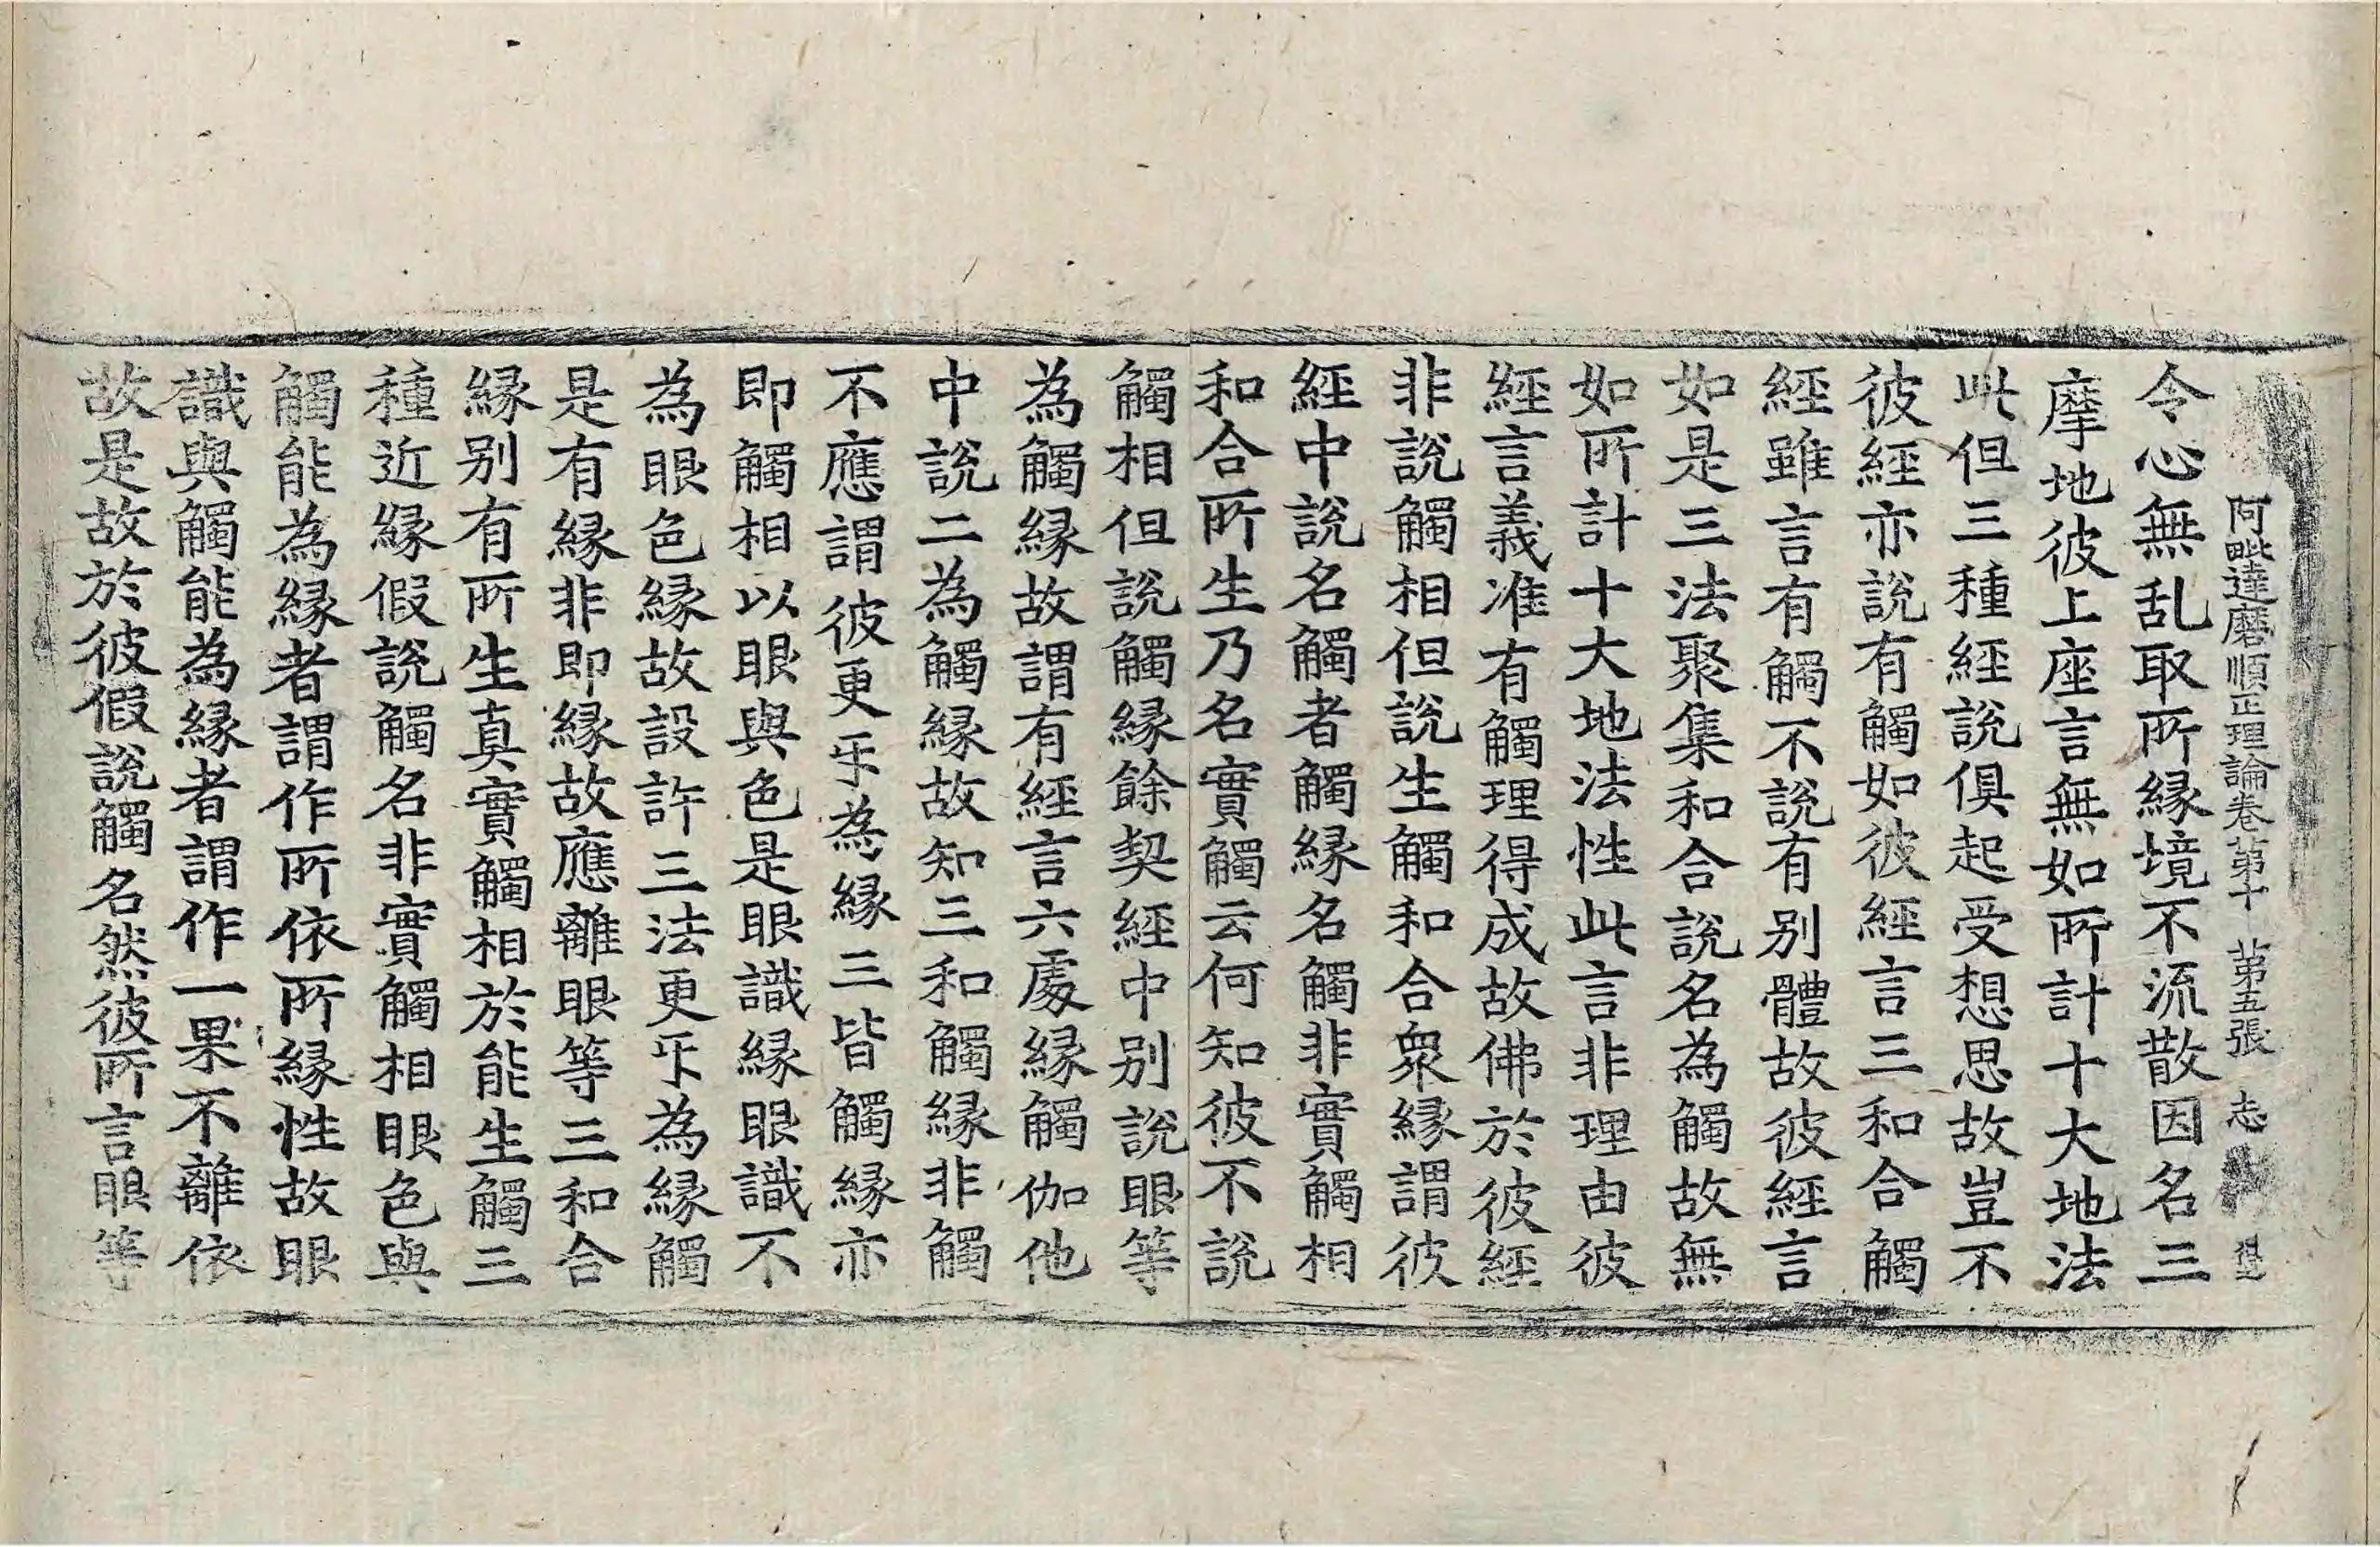 阿毗達磨順正理論卷第十 第五張 志
令心無乱取所縁境不流散因名三
摩地彼上座言無如所計十大地法
此但三種經說俱起受想思故豈不
彼經亦說有觸如彼經言三和合觸
經雖言有觸不說有别體故彼經言
如是三法聚集和合說名為觸故無
如所計十大地法性此言非理由彼
經言義准有觸理得成故佛於彼經
非說觸相但說生觸和合衆縁謂彼
經中說名觸者觸縁名觸非實觸相
和合所生乃名實觸云何知彼不說
觸相但說觸縁餘契經中别說眼等
為觸縁故謂有經言六處縁觸伽他
中說二為觸縁故知三和觸縁非觸
不應謂彼更乐為縁三皆觸縁亦
即觸相以眼與色是眼識縁眼識不
為眼色縁故設許三法更乐為縁觸
是有縁非即縁故應離眼等三和合
縁别有所生真實觸相於能生觸三
種近縁假說觸名非實觸相眼色與
觸能為縁者謂作所依所縁性故眼
識與觸能為縁者謂作一果不離依
故是故於彼假說觸名然彼所言眼等